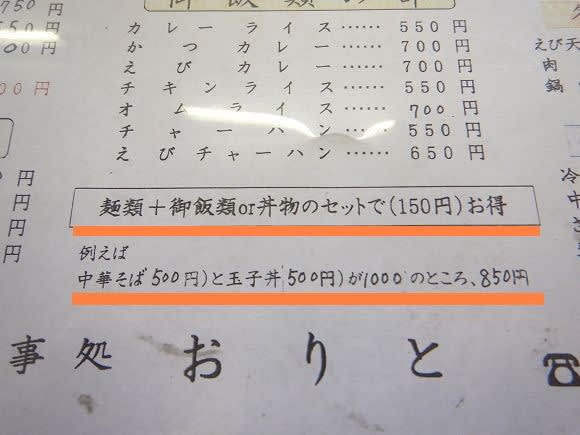 750 円
00 円
00円
円
円
円
円
カレーライス……550円
かつカレー……700円
えびカレー……700円
チキンライス……550円
オムライス……700円
チャーハン……550円
えびチャーハン……650円
麺類＋御飯類or丼物のセットで(150円)お得
例えば
中華そば500円)と玉子丼500円)が1000のところ、850円
事処 おりと ☎
えび天
肉
鍋
冷
中